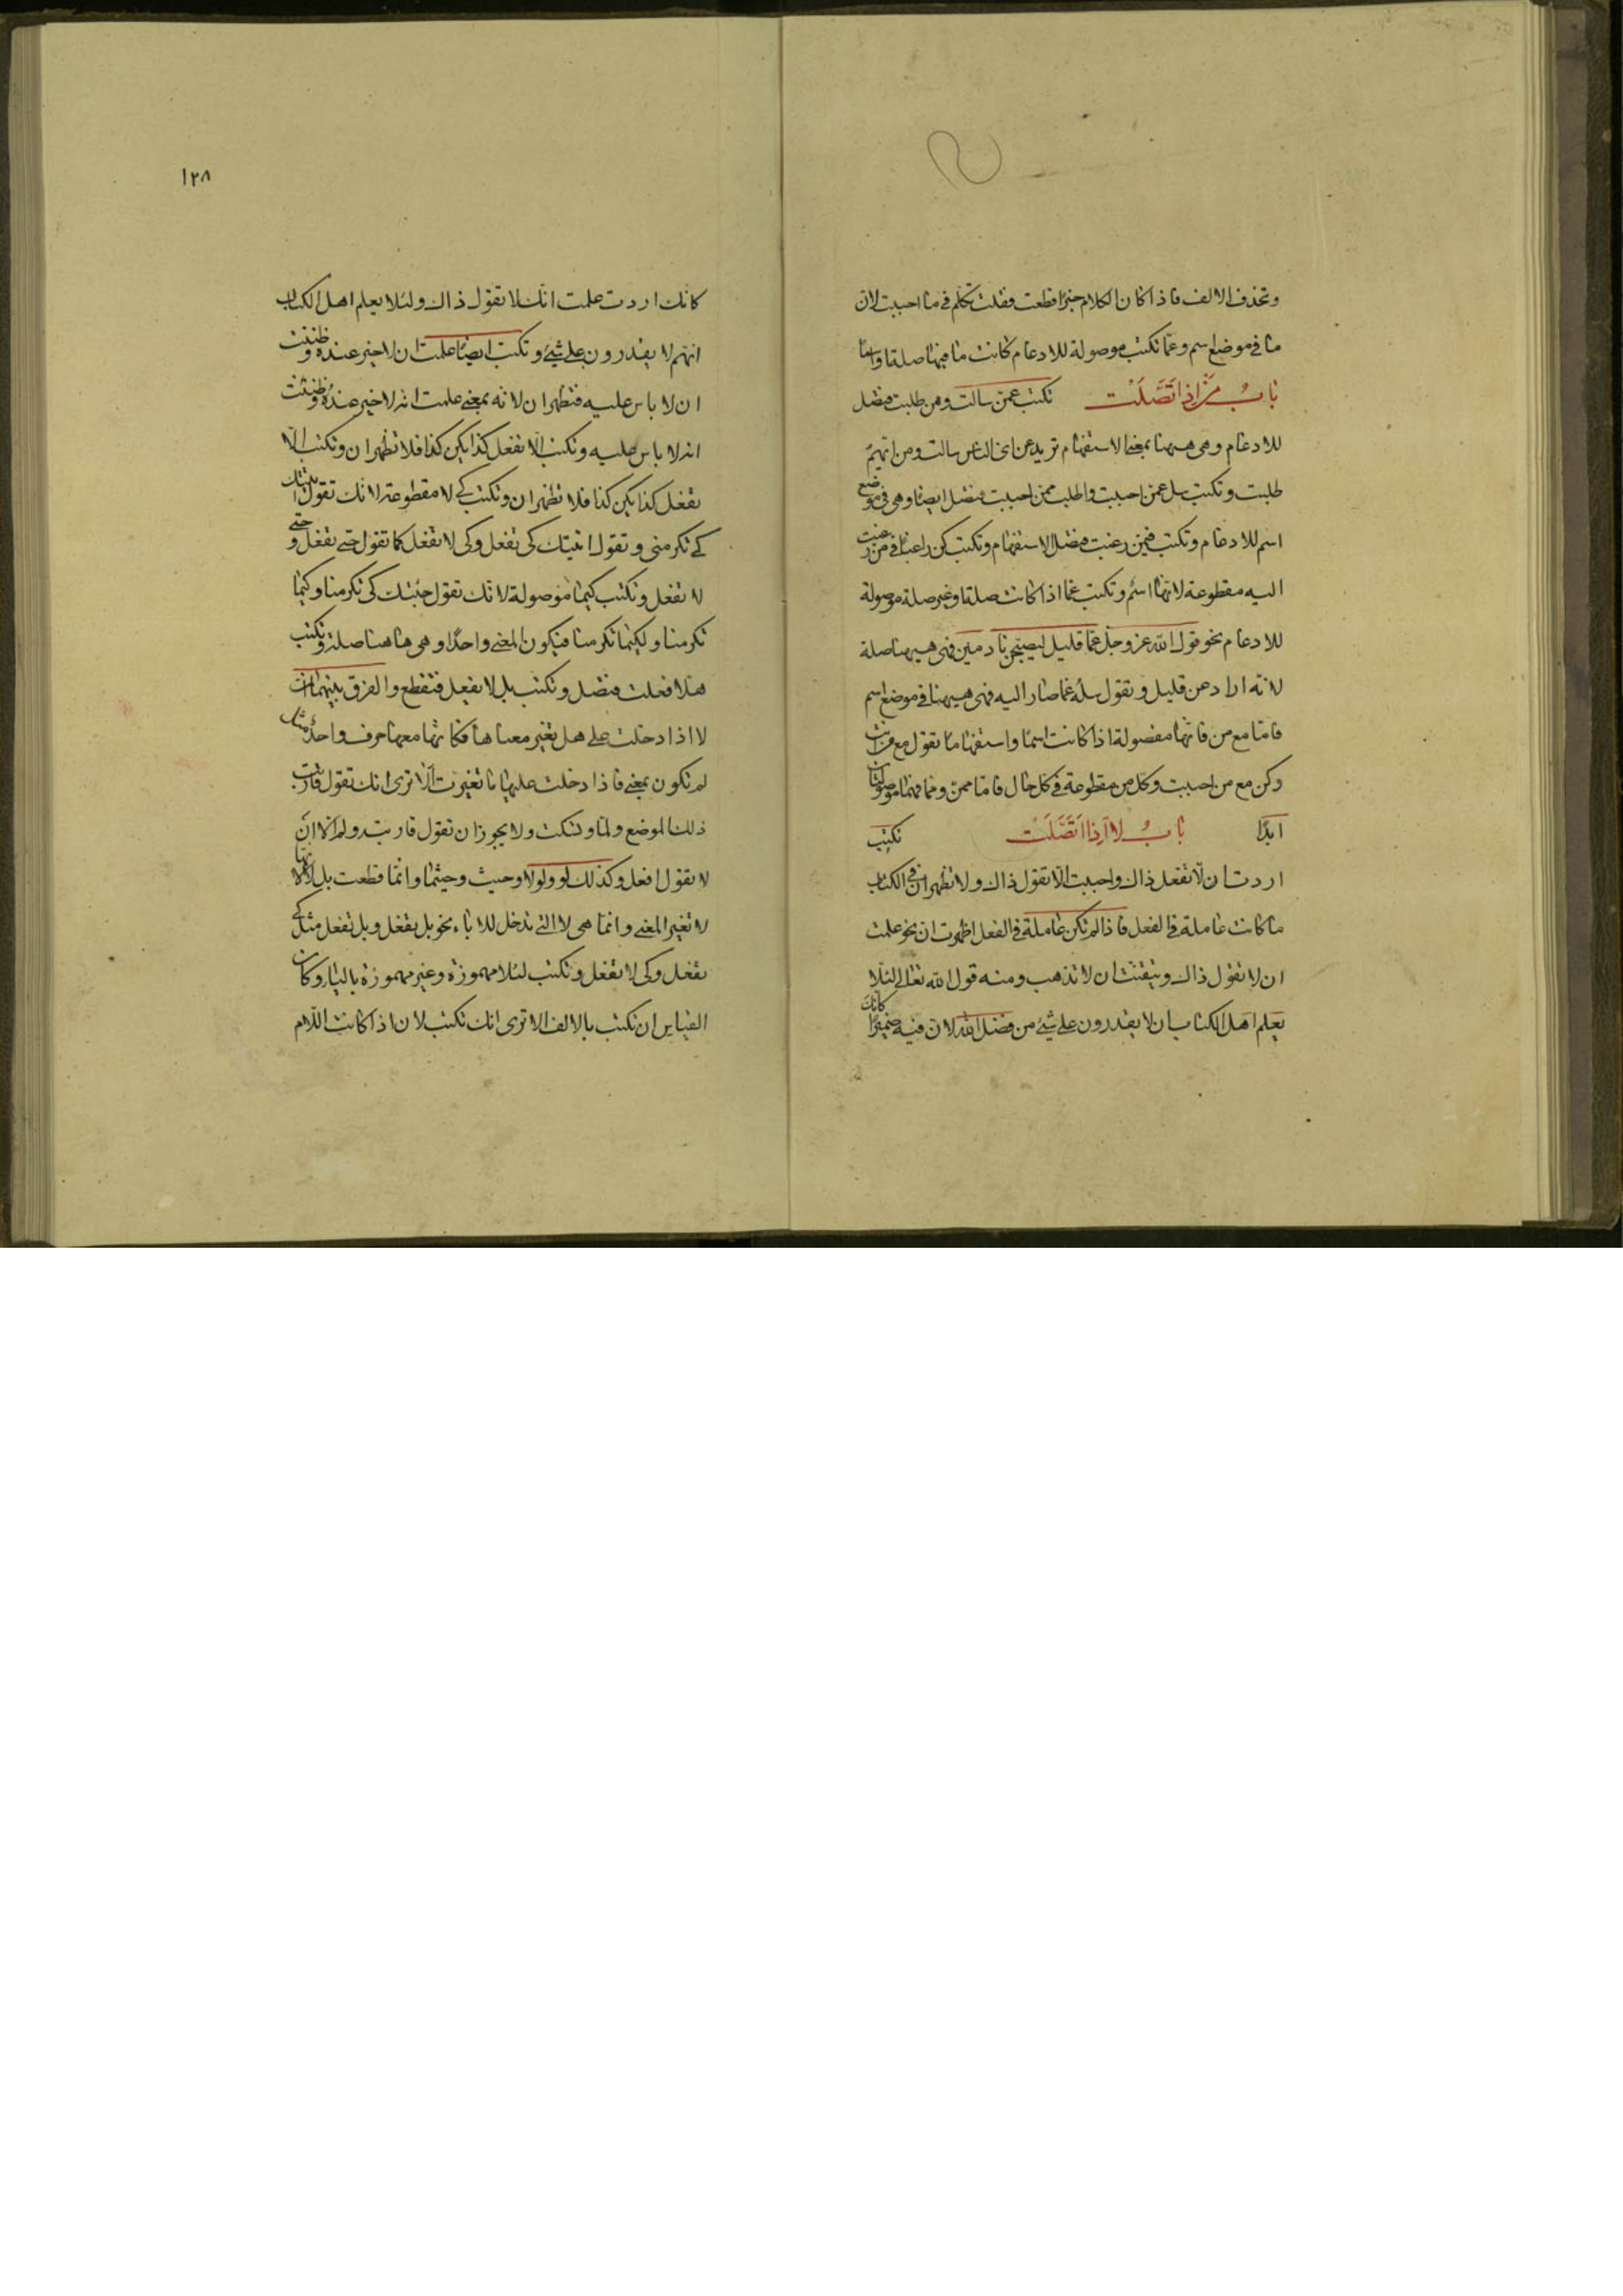 وتحذف الالف فاذا كان الكلام خبرًا قطعت فقلت تكلم في ما احببت لان
ما في موضع اسم وعمّا تكتب موصولة للادغام كانت ما فيها صلة او اسمًا
باب من اذا اتصلت نكتب عمّن سالت وممن طلبت فتصل
للادغام وهي هيهنا بمعنى الاستفهام تريد عن اي الناس سالت ومن ايّهم
طلبت وتكتب سل عمن احببت واطلب ممن احببت فتصل ايضا وهي في موضع
اسم للادغام وتكتب فيمن رغبت فتصل الاستفهام وتكتب كن راغبًا في من رغبت
اليه مقطوعة لانها اسم وتكتب عما اذا كانت صلة او غير صلة موصولة
للادغام نحو قول الله عز وجل عمّا قليل ليصبحن نادمين فهي هيهنا صلة
لانه اراد عن قليل وتقول سله عما صار اليه فهي هيهنا في موضع اسم
فاما مع من فانها مفصولة اذا كانت اسمًا واستفهاما تقول مع من انت
وكن مع من احببت وكل من مقطوعة في كل حال فاما ممن ومما فهما موصولتان
ابدًا باب لا اذا اتصلت نكتب
اردت ان لا تفعل ذاك واحببت الّا تقول ذاك ولا تظهر ان في الكتاب
ما كانت عاملة في الفعل فاذا لم تكن عاملة في الفعل اظهرت ان نحو علمت
ان لا تقول ذاك وتيقنت ان لا تذهب ومنه قول الله تعالى لئلا
يعلم اهل الكتاب ان لا يقدرون على شئ من فضل الله لان فيه ضميرًا كانك
١٢٨
كانك اردت علمت انك لا تقول ذاك ولئلا يعلم اهل الكتاب
انهم لا يقدرون على شئ وتكتب ايضًا علمت ان لا خير عنده وظننت
ان لا باس عليه فتظهر ان لانه بمعنى علمت انه لا خير عنده وظننت
انه لا باس عليه وتكتب الّا تفعل كذا يكن كذا فلا تظهر ان وتكتب الّا
تفعل كذا يكن كذا فلا تظهر ان وتكتب كي لا مقطوعة لانك تقول اتيتك
كي تكرمني وتقول اتيتك كي تفعل وكي لا تفعل كما تقول حتى تفعل وحتى
لا تفعل وتكتب كيما موصولة لانك تقول جئتك كي تكرمنا وكيما
تكرمنا ولكيما تكرمنا فيكون المعنى واحدًا وهي ها هنا صلة وتكتب
هلا فعلت فتصل وتكتب بل لا يفعل فتقطع والفرق بينهما ان
لا اذا دخلت على هل تغير معناها فكانها معها حرف واحد مثل
لم تكون بمعنى فاذا دخلت عليها ما تغيرت الا ترى انك تقول قاربت
ذلك الموضع ولما وتسكت ولا يجوز ان تقول قاربته ولم الا ان
لا تقول افعل وكذلك لو ولولا وحيث وحيثما وانما قطعت بل لا لانها
لا تغير المعنى وانما هي لا التي تدخل للاباء نحو بل يفعل وبل تفعل مثل كي
تفعل وكي لا تفعل وتكتب لئلا مهموزة وغير مهموزة بالياء وكان
القياس ان تكتب بالالف الا ترى انك تكتب لان اذا كانت اللام